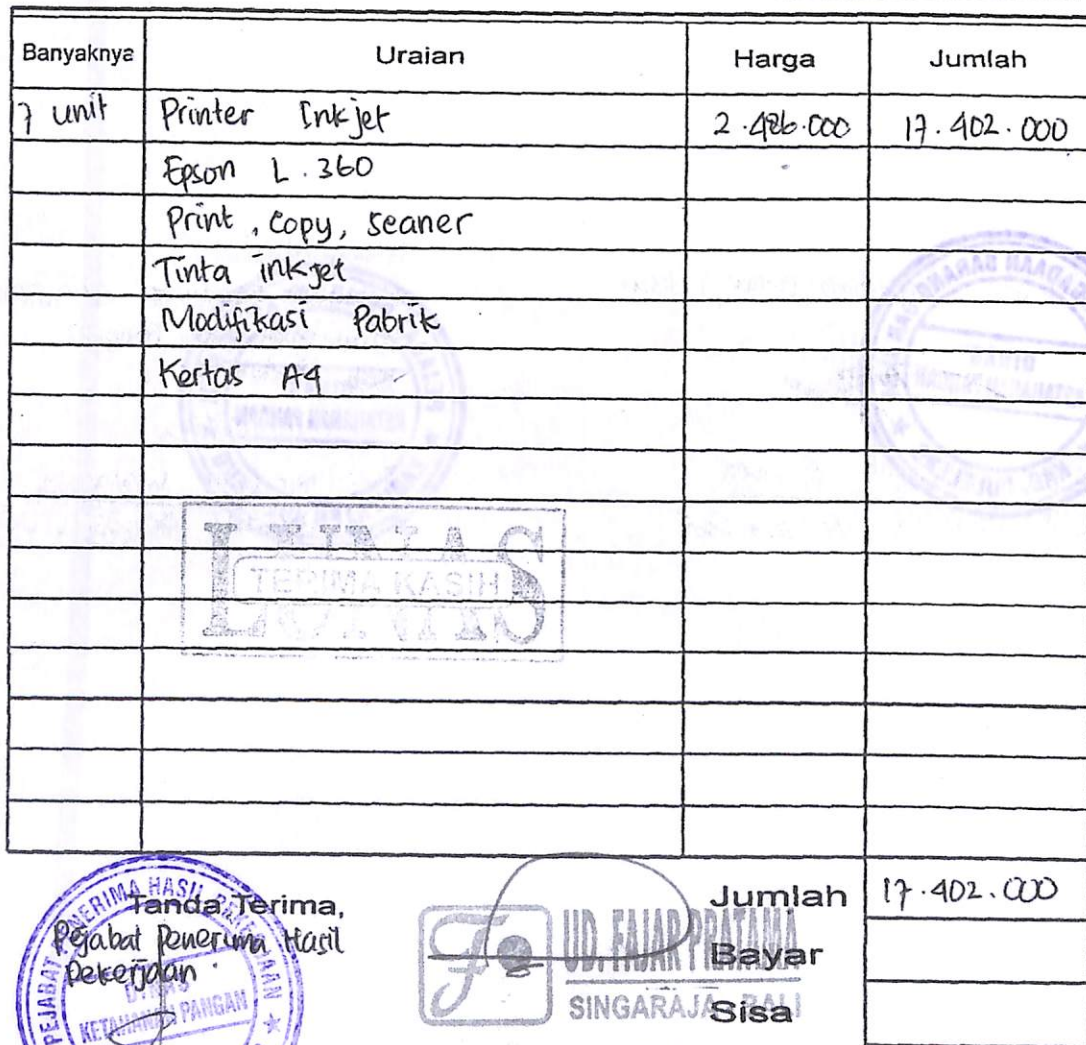 Banyaknya Uraian Harga Jumlah
7 unit Printer Inkjet 2.486.000 17.402.000
Epson L.360
Print, Copy, Seaner
Tinta inkjet
Modifikasi Pabrik
Kertas A4
LUNAS
TERIMA KASIH
LUNAS
Tanda Terima,
Pejabat Penerima Hasil
Pekerjaan.
PEJABAT PENERIMA HASIL PEKERJAAN
DINAS
KETAHANAN PANGAN
UD. FAJAR PRATAMA
SINGARAJA - BALI
Jumlah 17.402.000
Bayar
Sisa